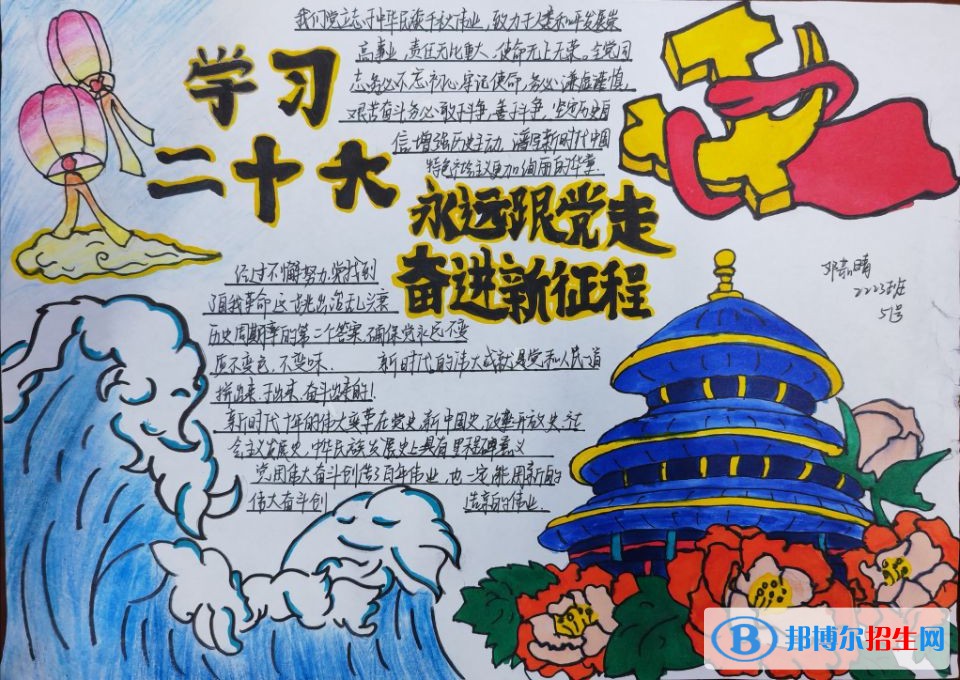 我们党立志于中华民族千秋伟业，致力于人类和平发展崇
高事业，责任无比重大，使命无上光荣。全党同
志务必不忘初心、牢记使命，务必谦虚谨慎、
艰苦奋斗，务必敢于斗争、善于斗争，坚定历史自
信，增强历史主动，谱写新时代中国
特色社会主义更加绚丽的华章.
学习
二十大
永远跟党走
奋进新征程
经过不懈努力，党找到
了自我革命这一跳出治乱兴衰
历史周期率的第二个答案，确保党永远不变
质、不变色、不变味.
新时代的伟大成就是党和人民一道
拼出来、干出来、奋斗出来的！
新时代十年的伟大变革，在党史、新中国史、改革开放史、社
会主义发展史、中华民族发展史上具有里程碑意义
党用伟大奋斗创造了百年伟业，也一定能用新的
伟大奋斗创
造新的伟业.
2223班
51号
邦博尔招生网